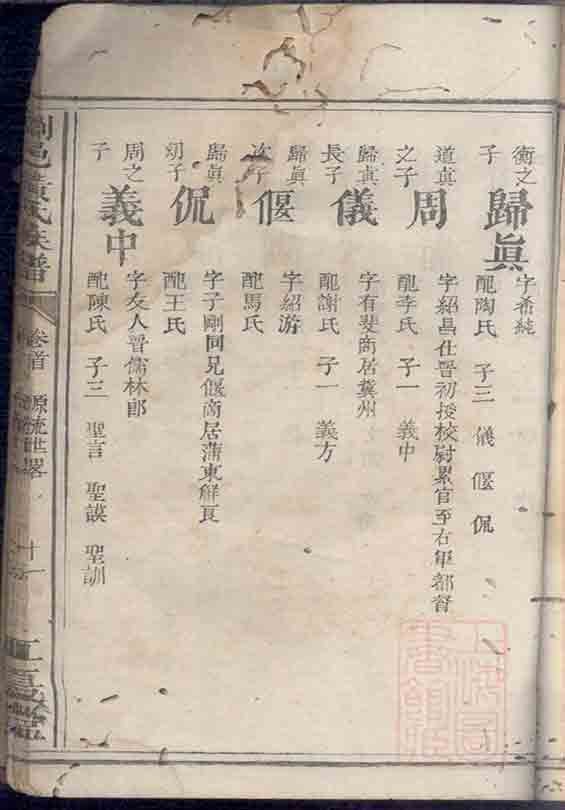 衡之子
歸眞
字希純
配陶氏 子三 儀 偃 侃
道眞之子
周
字紹昌仕晉初授校尉累官至右軍都督
配李氏 子一 義中
歸眞長子
儀
字有斐商居冀州
配謝氏 子一 義方
歸眞次子
偃
字紹游
配馬氏
歸眞幼子
侃
字子剛同兄偃商居蒲東解良
配王氏
周之子
義中
字友人晉儒林郎
配陳氏 子三 聖言 聖謨 聖訓
瀏邑黃氏族譜
卷首 源流世畧
十一
江夏堂